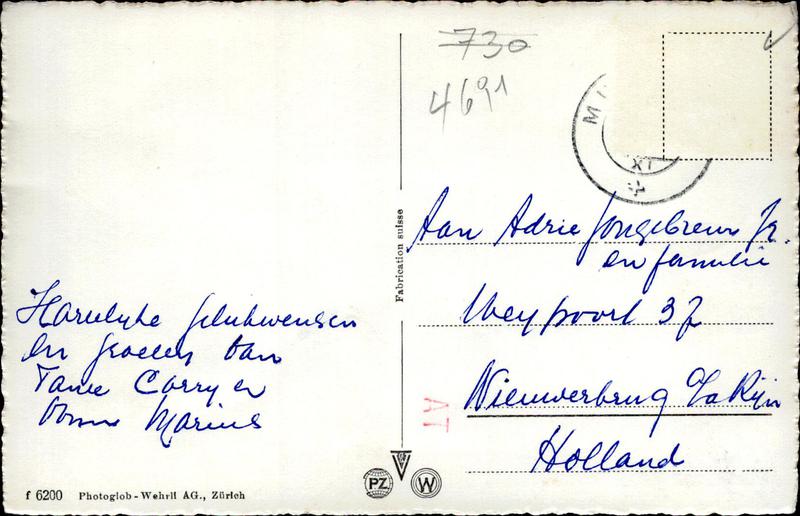 730
4691
M
XI
Aan Adrie Jongebreur Jr.
en familie
Weypoort 37
Nieuwerbrug a/d Rijn
Holland
Hartelyke gelukwensen
en groeten van
Tante Corry en
Oome Marius
Fabrication suisse
PZ
W
f 6200 Photoglob-Wehrli AG., Zürich